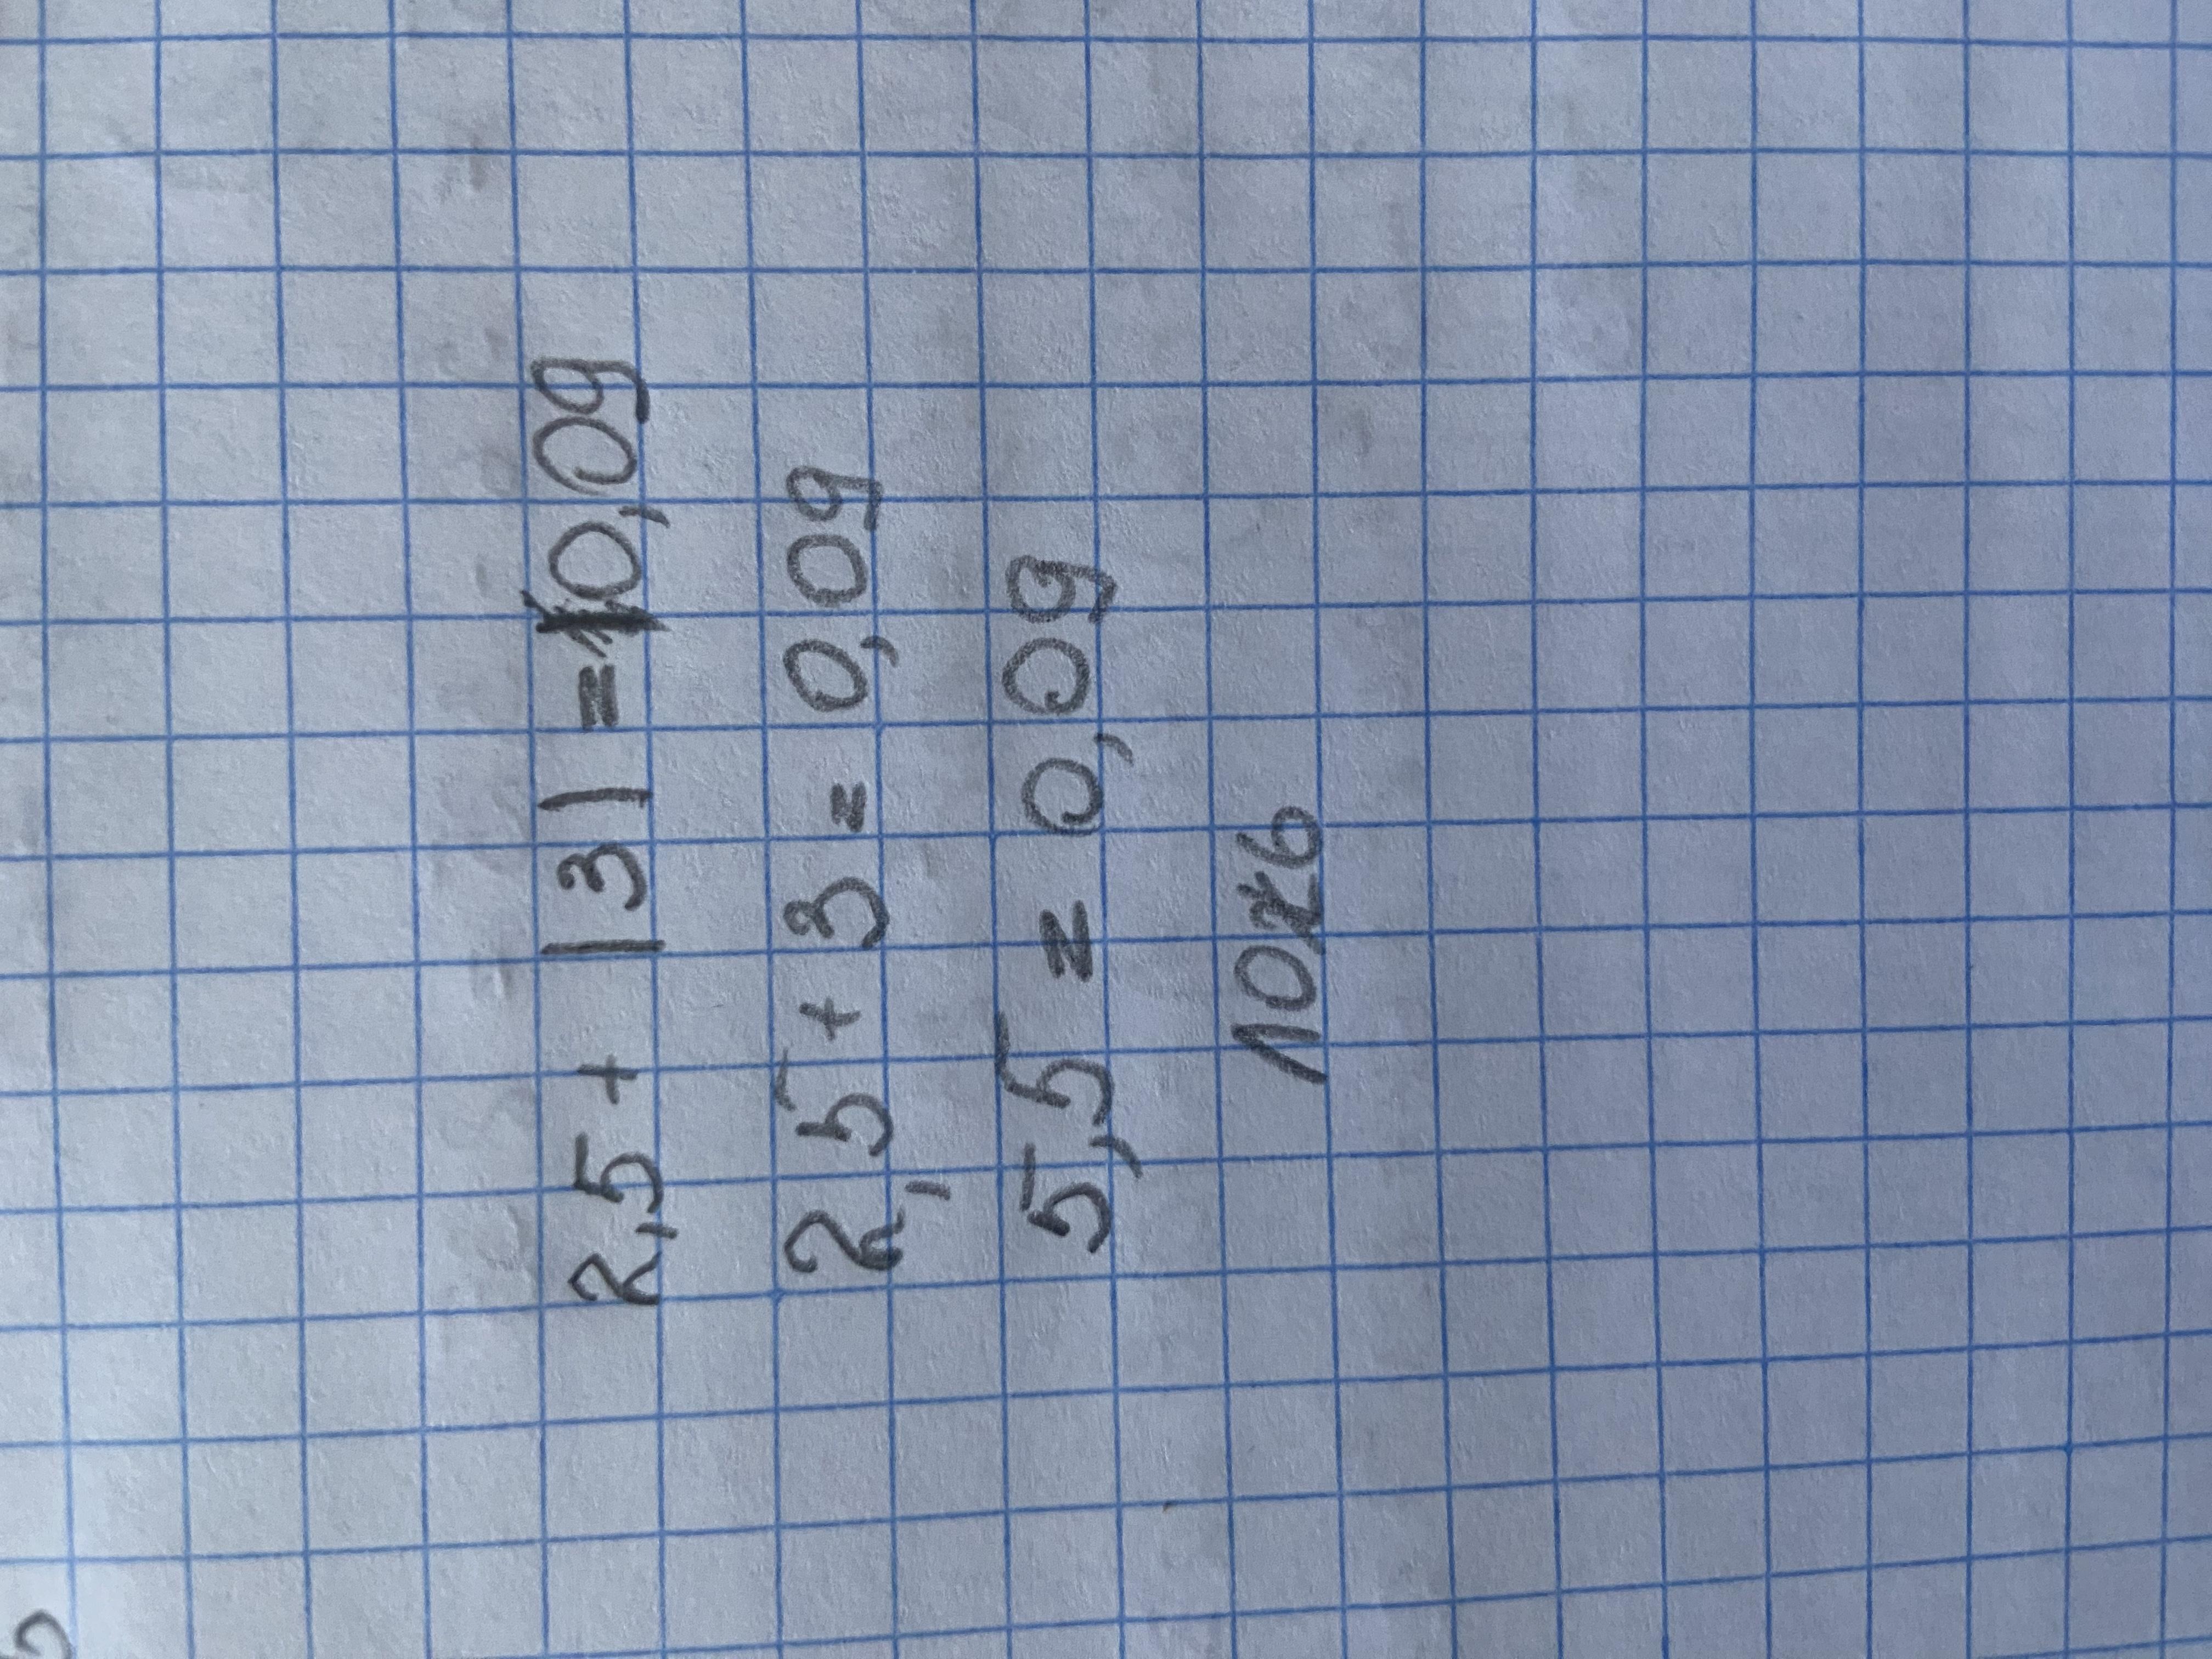 2,5 + |3| = 0,09
2,5 + 3 = 0,09
5,5 = 0,09
ложь